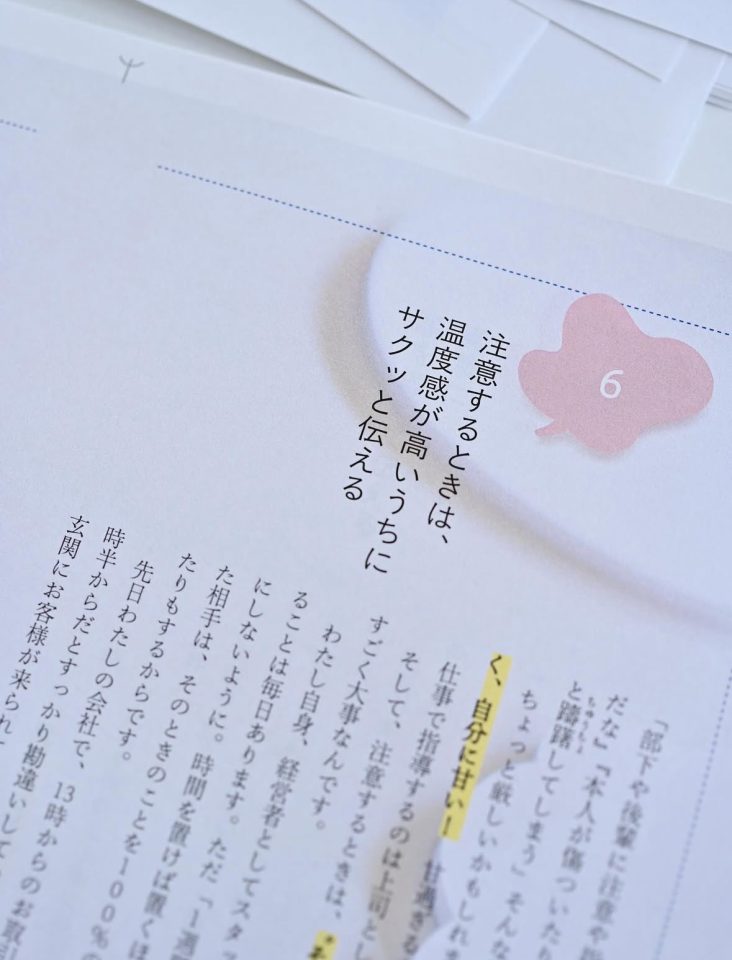 6
注意するときは、
温度感が高いうちに
サクッと伝える
「部下や後輩に注意や
だな』『本人が傷ついたり
と躊躇してしまう」そんな
ちゅうちょ
ちょっと厳しいかもしれま
く、自分に甘い! 甘過ぎる
仕事で指導するのは上司とし
そして、注意するときは、
すごく大事なんです。
わたし自身、経営者としてスタッ
ることは毎日あります。ただ「1週
にしないように。時間を置けば置くほ
た相手は、そのときのことを100%の
たりもするからです。
先日わたしの会社で、13時からのお取引
時半からだとすっかり勘違いして
玄関にお客様が来られて